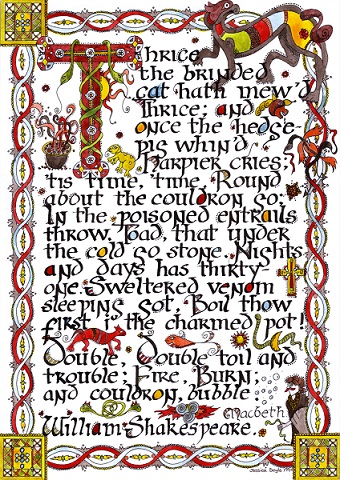 Thrice
the brinded
cat hath mew'd
Thrice; and
once the hedge-
pig whin'd
Harpier cries;
'tis time, time. Round
about the couldron go;
In the poisoned entrails
throw. Toad, that under
the cold go stone. Nights
and days has thirty
one. Sweltered venom
sleeping got, Boil thow
first i' the charmed pot!
Double, Double toil and
trouble; Fire, Burn;
and couldron, bubble
Macbeth.
William Shakespeare.